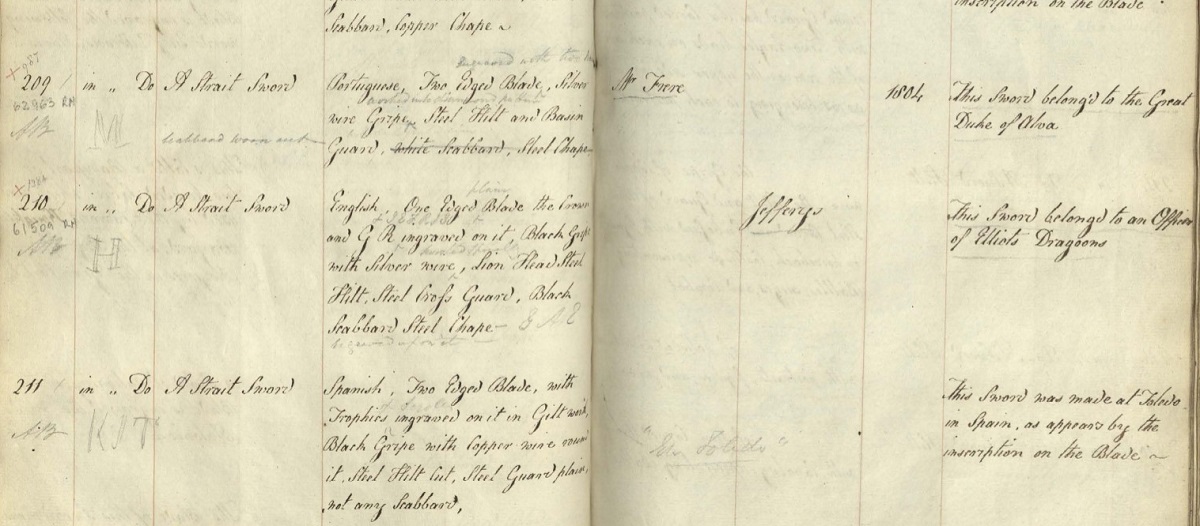 Scabbard, Copper Chape ~
inscription on the Blade
209 in " Do A Strait Sword Portuguese, Two Edged Blade, Silver Mr Frere 1804 This Sword belong'd to the Great
62963 RM wire Gripe, Steel Hilt and Basin Duke of Alva
AB scabbard worn out Guard, white Scabbard, Steel Chape
plain
210 in " Do A Strait Sword English, One Edged Blade the Crown Jefferys This Sword belong'd to an Officer
61509 RM and G R ingraved on it, Black Gripe of Elliots Dragoons
AB H with Silver wire, Lion Head Steel
Hilt, Steel Cross Guard, Black
Scabbard Steel Chape
211 in " Do A Strait Sword Spanish, Two Edged Blade, with This Sword was made at Toledo
Trophies ingraved on it in Gilt work, in Spain, as appears by the
AB Black Gripe with Copper wire round "En Toledo" inscription on the Blade ~
it, Steel Hilt cut, Steel Guard plain,
not any Scabbard,